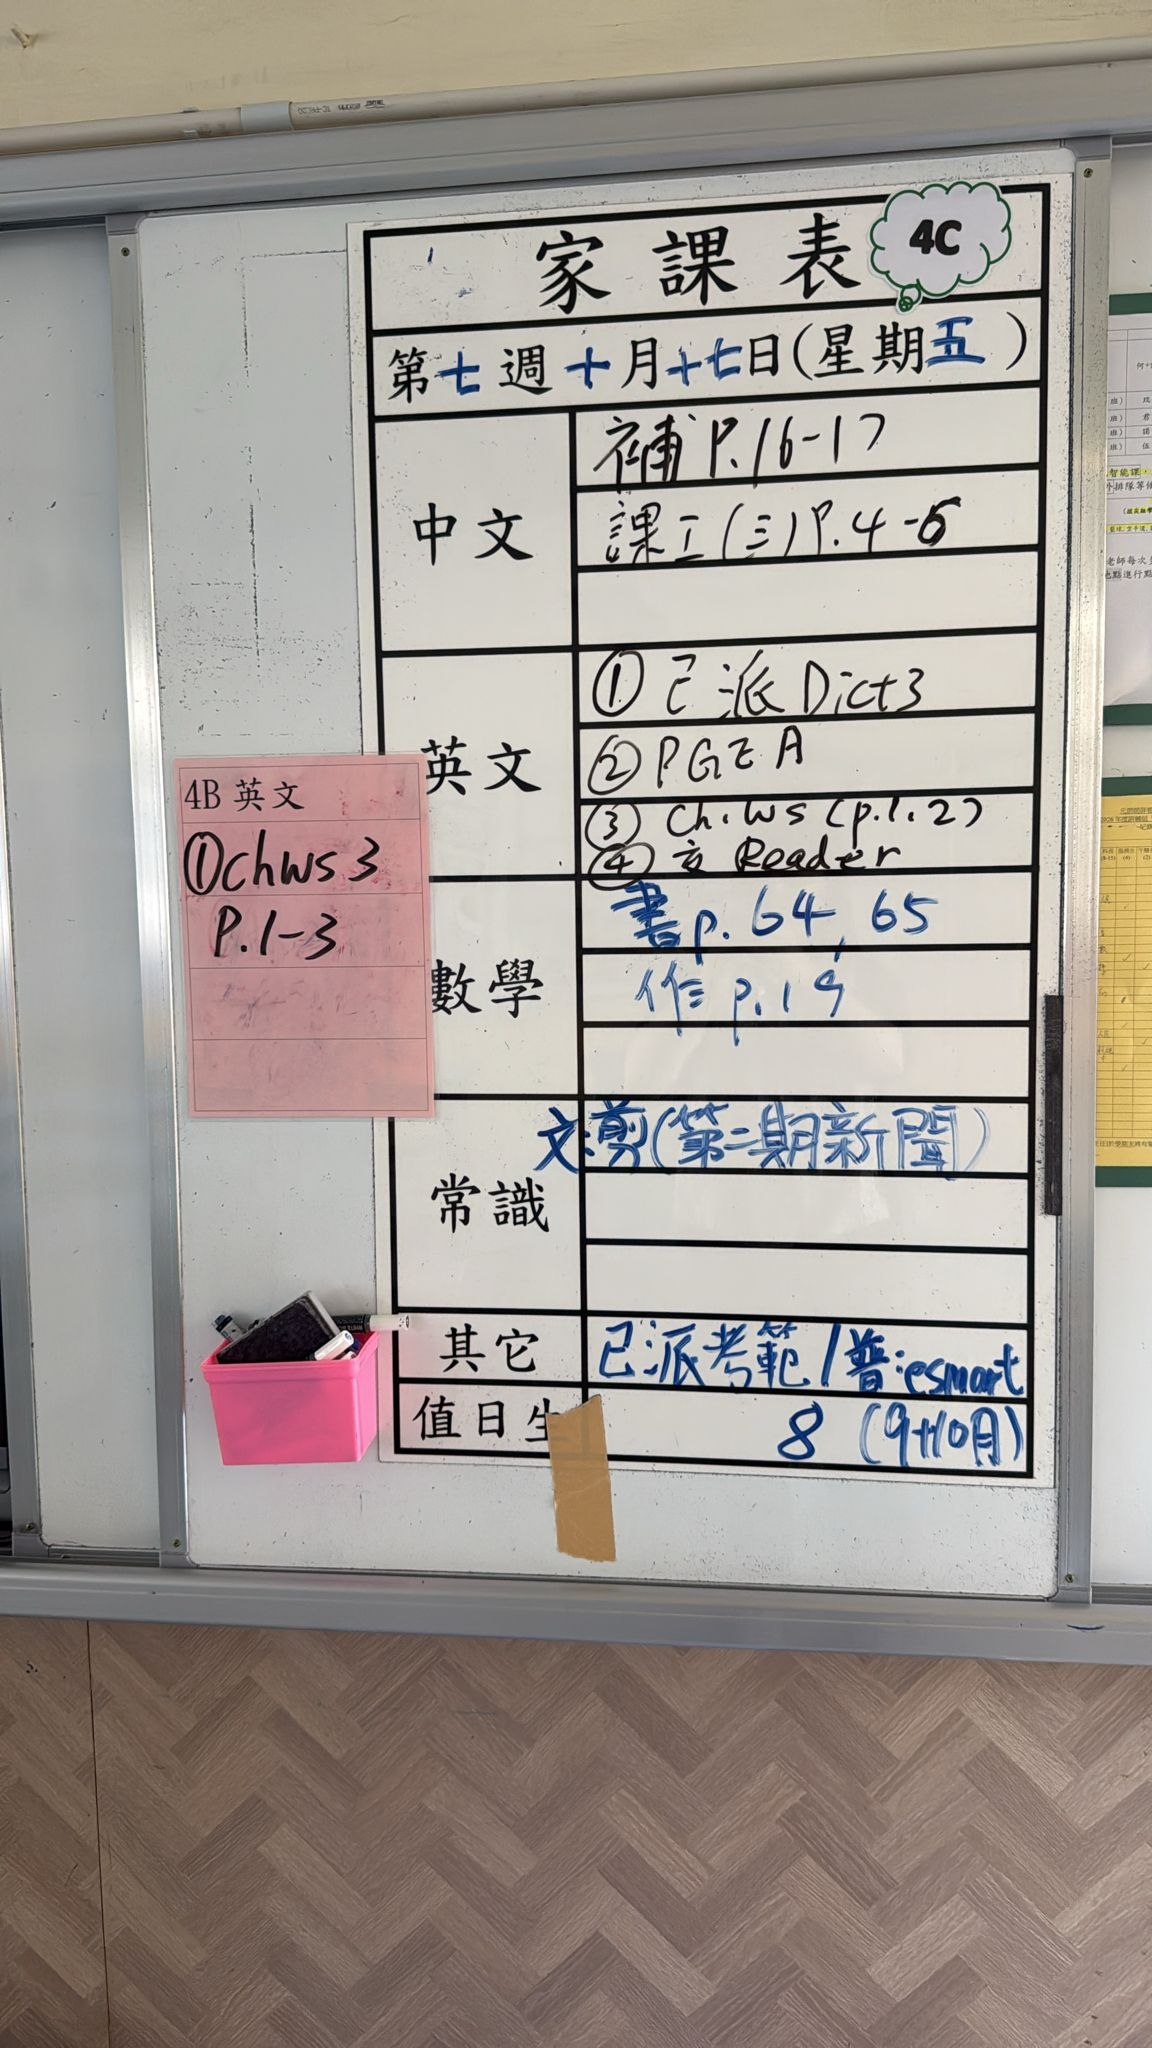 家課表
4C
第七週十月十七日(星期五)
中文
補P.16-17
課工(三)P.4-6
英文
① 已派 Dict3
② PGEA
③ Ch.WS (p.1.2)
④ 交 Reader
4B 英文
①chws 3
P.1-3
數學
書p. 64, 65
作 p.19
常識
交:剪(第二期新聞)
其它
已派考範/普:esmart
值日生
8 (9+10月)